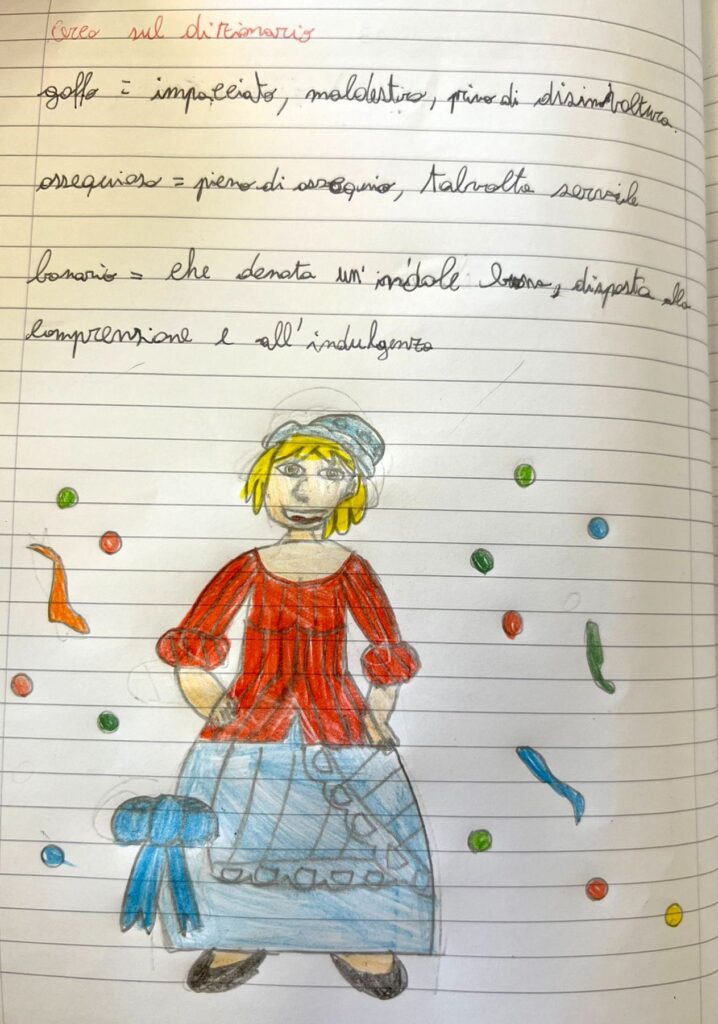 Cerco sul dizionario
goffo = impacciato, maldestro, privo di disinvoltura.
ossequioso = pieno di ossequio, talvolta servile
bonario = che denota un' indole buona, disposta alla
comprensione e all'indulgenza